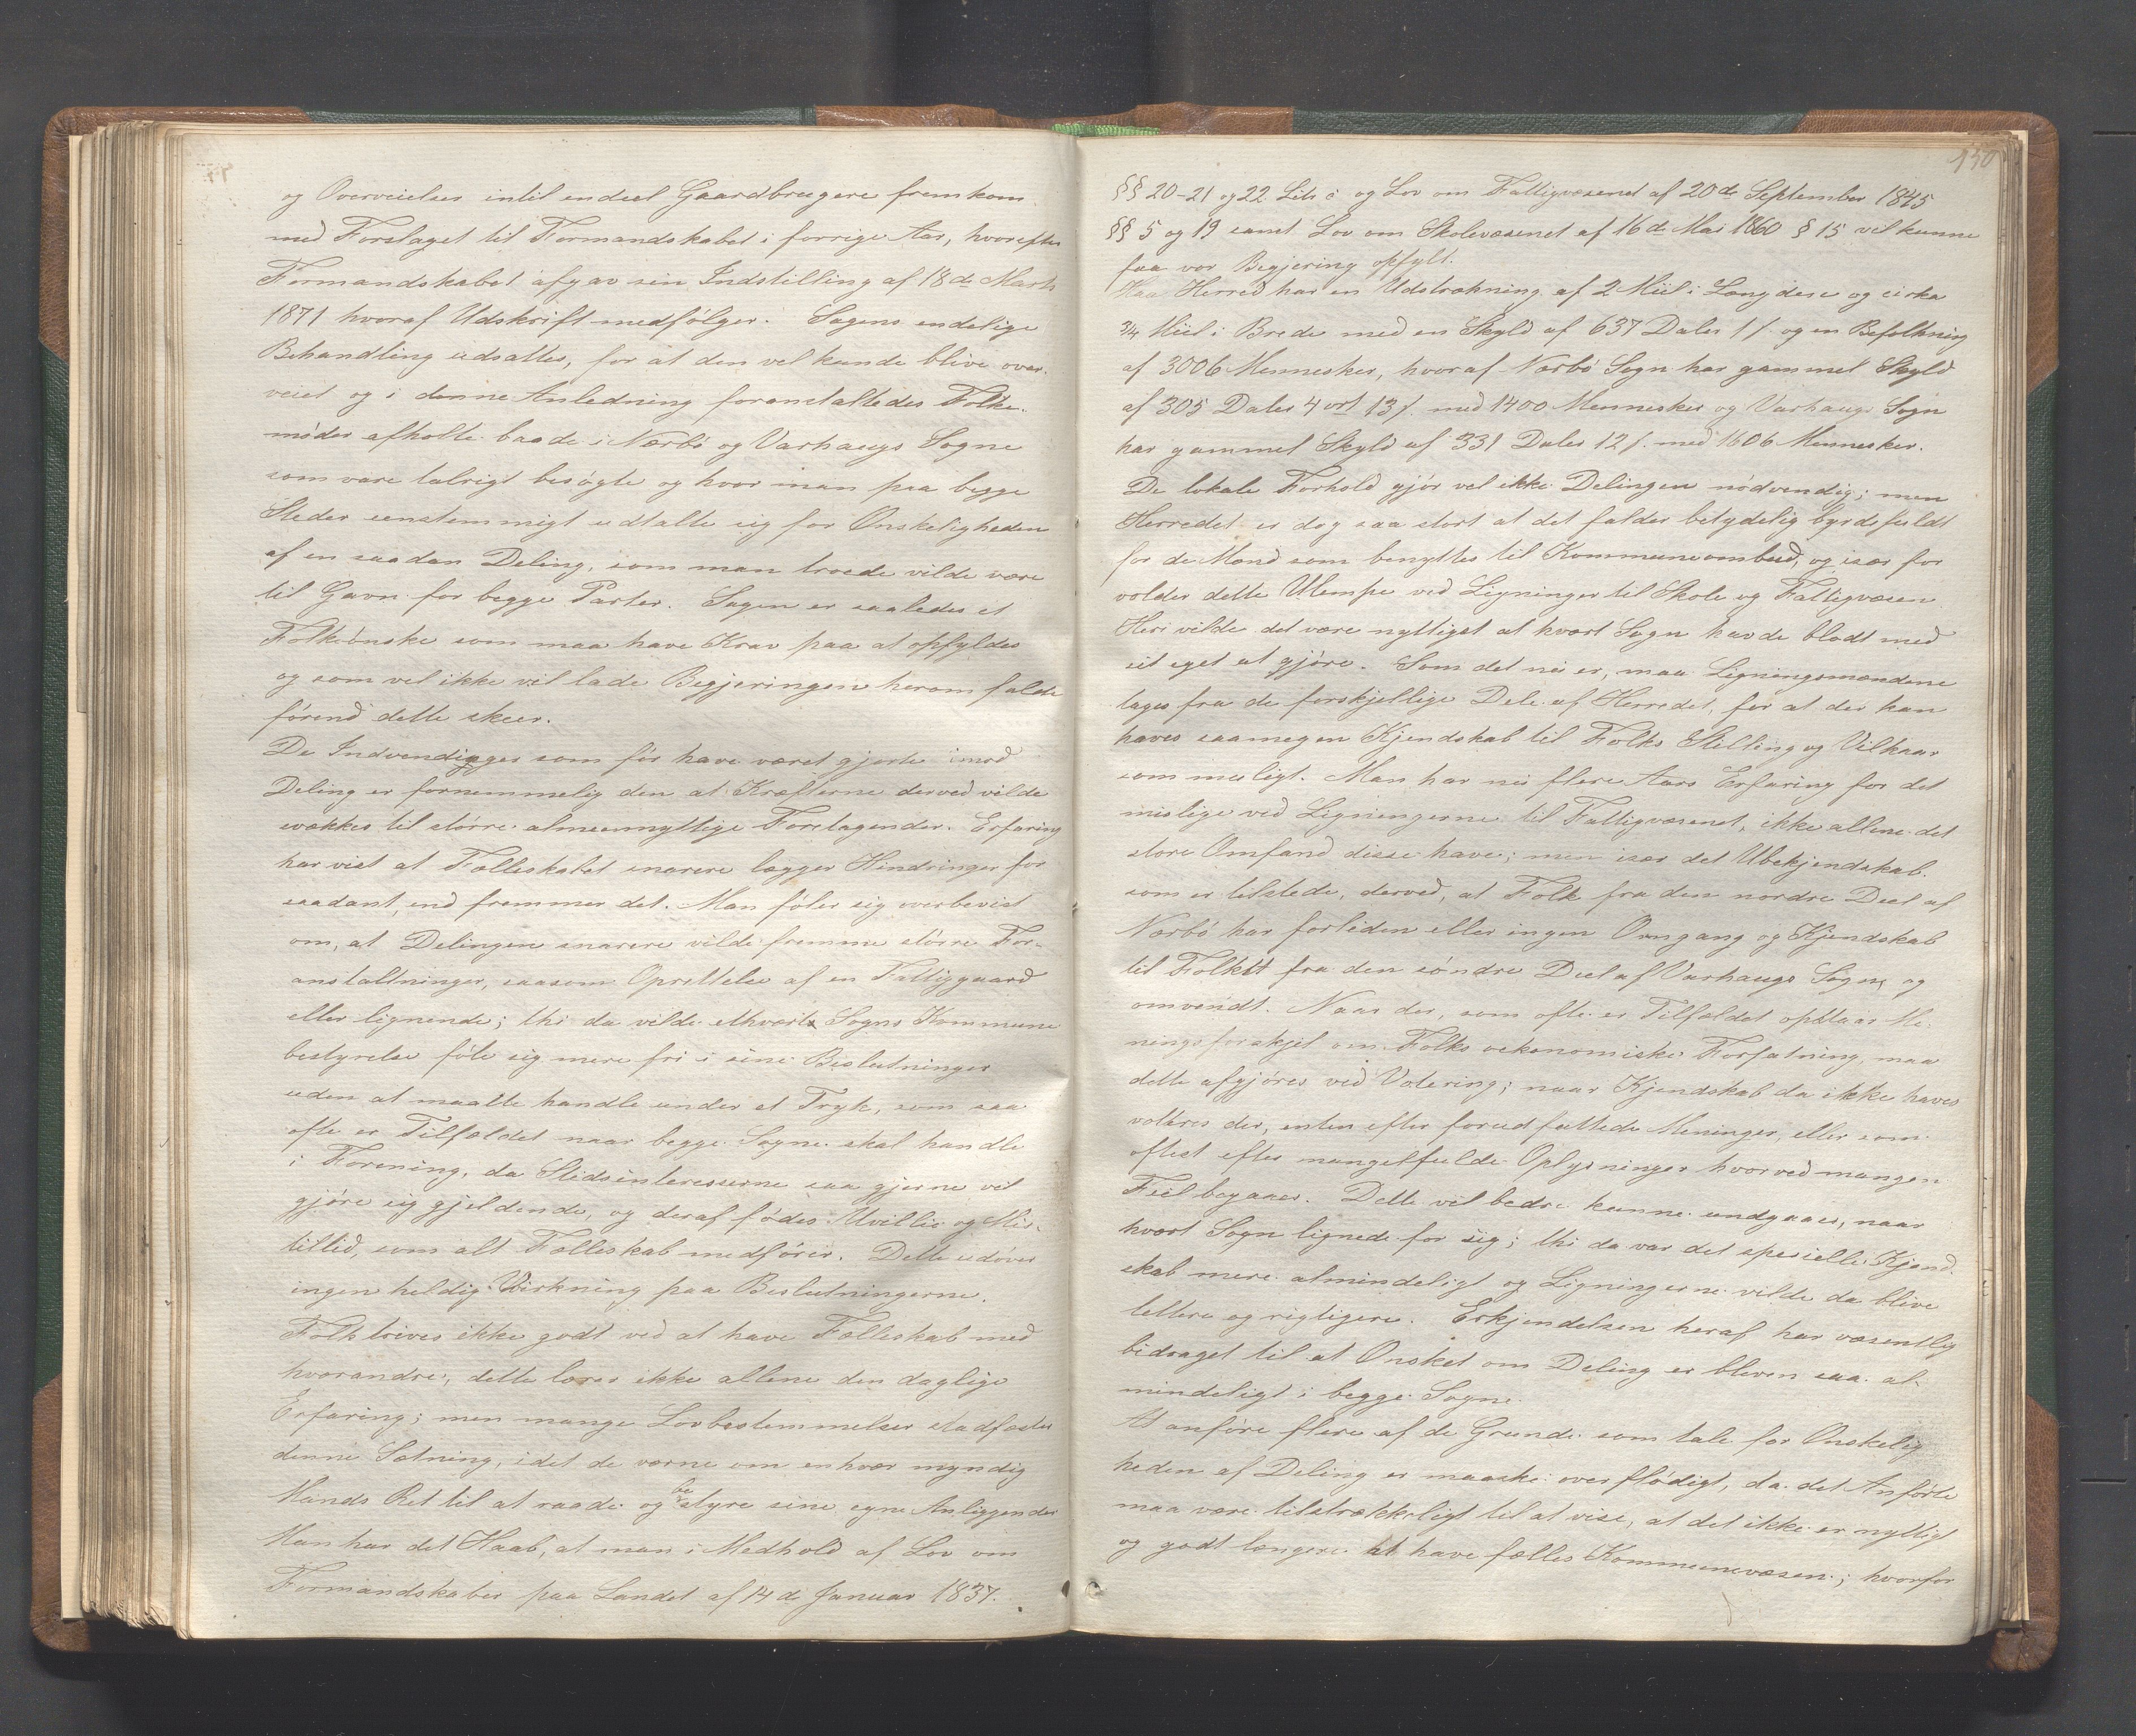 og Overveielser intil endeel Gaardbrugere fremkom
med Forslaget til Formandskabet i forrige Aar, hvorefter
Formandskabet afgav sin Indstilling af 18de Marts
1871 hvoraf Udskrift medfölger. Sagens endelige
Behandling udsattes, for at den vel kunde blive over-
veiet og i denne Anledning foranstaltedes Folke-
möder afholdte baade i Nærbö og Varhaugs Sogne
som vare talrigt besögte og hvor man paa begge
Steder eenstemmigt udtalte sig for Ønskeligheden
af en saadan Deling, som man troede vilde være
til Gavn for begge Parter. Sagen er saaledes et
Folkeönske som maa have Krav paa at opfyldes
og som vel ikke vil lade Begjeringen herom falde
förend dette skeer.
De Indvendinger som för have været gjorte imod
Deling er fornemmelig den at Kræfterne derved vilde
svækkes til större almeennyttige Foretagender. Erfaring
har vist at Fælleskabet snarere lægger Hindringer for
saadant, end fremmer det. Man föler sig overbevist
om, at Delingen snarere vilde fremme större For-
anstaltninger, saasom Oprettelse af en Fattiggaard
eller lignende; thi da vilde ethvert Sogns Kommune
bestyrelse föle sig mere fri i sine Beslutninger
uden at maatte handle under et Tryk, som saa
ofte er Tilfældet naar begge Sogne skal handle
i Forening, da Stedsinteresserne saa gjerne vil
gjöre sig gjeldende, og deraf födes Uvillie og Mis-
tillid, som alt Fælleskab medförer. Dette udöver
ingen heldig Virkning paa Beslutningerne.
Folk trives ikke godt ved at have Fælleskab med
hverandre, dette lærer ikke allene den daglige
Erfaring; men mange Lovbestemmelser stadfæster
denne Sætning, idet de værne om enhver myndig
Mands Ret til at raade og bestyre sine egne Anliggender
Man har det Haab, at man i Medhold af Lov om
Formandskaber paa Landet af 14de Januar 1837.
130
§§ 20-21 og 22 Litr c og Lov om Fattigvæsenet af 20de September 1845
§§ 5 og 19 samt Lov om Skolevæsenet af 16de Mai 1860 § 15 vil kunne
faa vor Begjering opfylt.
Haa Herred har en Udstrækning af 2 Miil i Længden og cirka
3/4 Miil i Brede med en Skyld af 637 Daler 1 /. og en Befolkning
af 3006 Mennesker, hvoraf Nærbö Sogn har gammel Skyld
af 305 Daler 4 ort 13 /. med 1400 Mennesker og Varhaugs Sogn
har gammel Skyld af 331 Daler 12 /. med 1606 Mennesker.
De lokale Forhold gjör vel ikke Delingen nödvendig; men
Herredet er dog saa stort at det falder betydelig byrdefuldt
for de Mænd som benyttes til Kommuneombud, og især for
volder dette Ulempe ved Ligninger til Skole og Fattigvæsen
Heri vilde det være nyttigst at hvert Sogn havde blodt med
sit eget at gjöre. Som det nu er, maa Ligningsmændene
tages fra de forskjellige Dele af Herredet, for at der kan
haves saamegen Kjendskab til Folks Stilling og Vilkaar
som muligt. Man har nu flere Aars Erfaring for det
mislige ved Ligningerne til Fattigvæsenet, ikke allene det
store Omfand disse have; men især det Ubekjendskab.
som er tilstede, derved, at Folk fra den nordre Deel af
Nærbö har forliden eller ingen Omgang og Kjendskab
til Folket fra den söndre Deel af Varhaugs Sogn, og
omvendt. Naar der, som ofte er Tilfældet opstaar Me-
ningsforskjel om Folks oekonomiske Forfatning, maa
dette afgjöres ved Votering; naar Kjendskab da ikke haves
voteres der, enten efter forudfattede Meninger, eller som
oftest efter mangelfulde Oplysninger hvorved mangen
Feil begaaes. Dette vil bedre kunne undgaaes, naar
hvert Sogn lignede for sig; thi da var det specielle Kjend-
skab mere almindeligt og Ligningerne vilde da blive
lettere og rigtigere. Erkjendelsen heraf har væsentlig
bidraget til at Ønsket om Deling er bleven saa al-
mindeligt i begge Sogne.
At anföre flere af de Grunde som tale for Ønskelig
heden af Deling er maaske overflödigt, da det Anförte
maa være tilstrækkeligt til at vise, at det ikke er nyttigt
og godt længere at have fælles Kommunevæsen; hvorfor